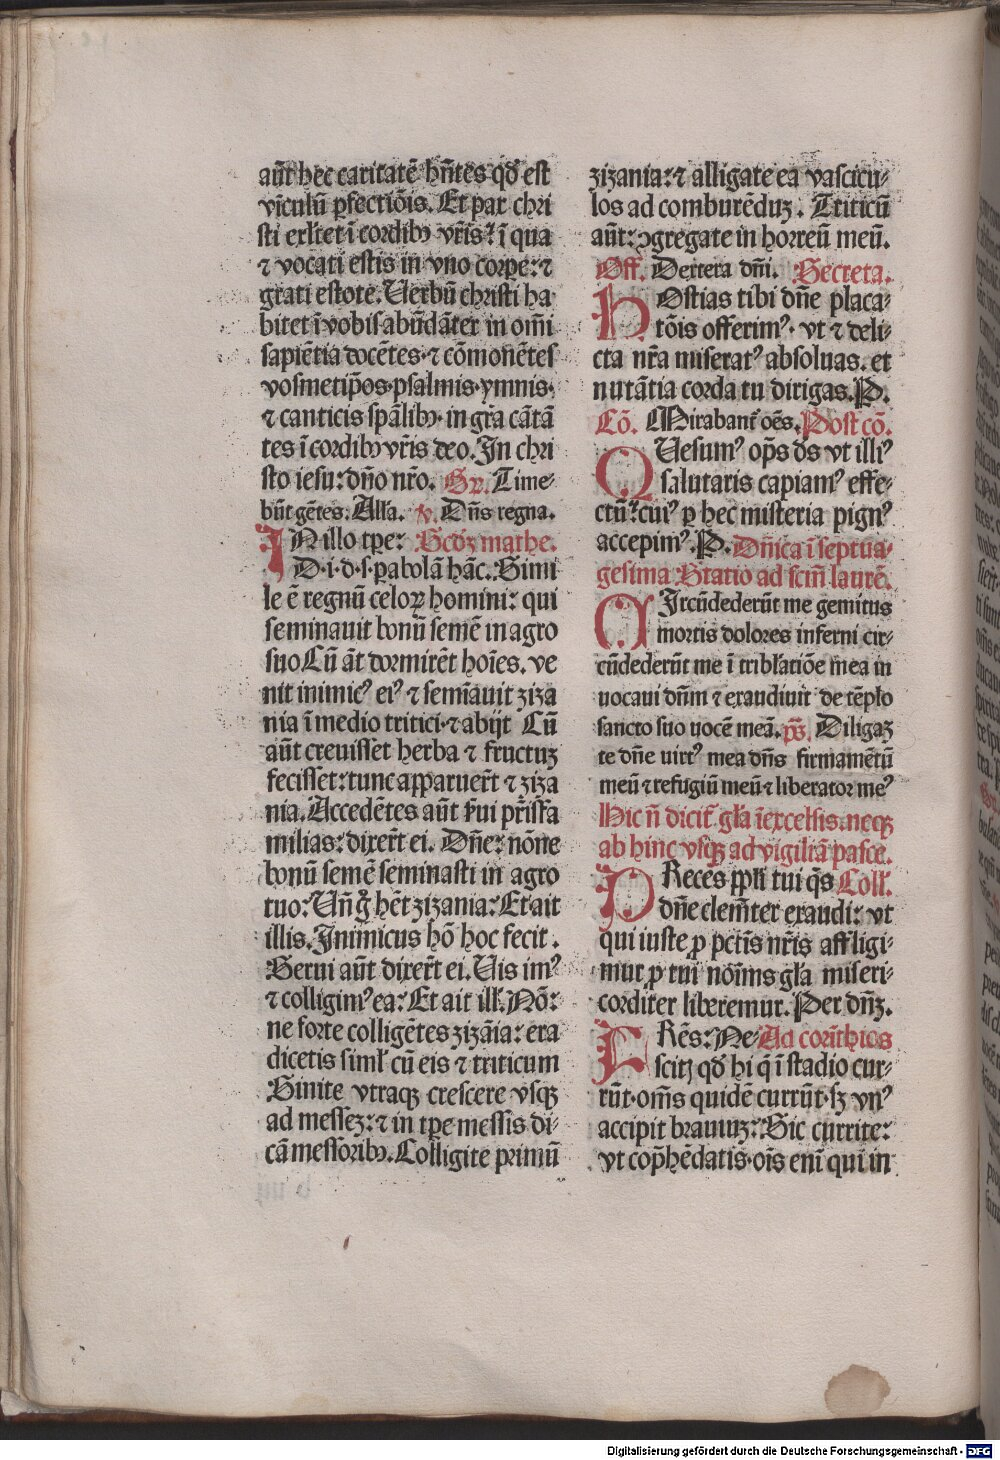 aūt hec caritatē hn̄tes qđ est
vīculū ꝑfectiōis. Et pax chri
sti exl̄tet ī cordibꝫ vr̄is: ī qua
⁊ vocati estis in vno corꝑe: ⁊
grati estote. Uerbū christi ha
bitet ī vobis abūdāter in om̄i
sapiētia docētes ⁊ cōmonētes
vosmetip̄os psalmis ymnis
⁊ canticis sp̄alibꝫ in gr̄a cātā
tes ī cordibꝫ vr̄is deo. In chri
sto iesu: dn̄o nr̄o. Gr̄. Time-
būt gētes. All̄a. ℣. Dn̄s regna.
IN illo tꝑe: Scđꝫ mathe.
D. i. d. s. ꝑabolā hāc. Simi
le ē regnū celoꝝ homini: qui
seminauit bonū semē in agro
suo Cū āt dormirēt hoīes. ve
nit inimicꝰ eiꝰ ⁊ semīauit ziza
nia ī medio tritici ⁊ abijt Cū
aūt creuisset herba ⁊ fructuꝫ
fecisset: tunc apparuer̄t ⁊ ziza
nia. Accedētes aūt s̄ui pr̄isfa
milias: dixer̄t ei. Dn̄e: nōne
bonū semē seminasti in agro
tuo: Un̄ gͦ hēt zizania: Et ait
illis. Inimicus hō hoc fecit.
Serui aūt dixer̄t ei. Uis imꝰ
⁊ colligimꝰ ea: Et ait ill̄. Nō:
ne forte colligētes zizāia: era
dicetis siml̄ cū eis ⁊ triticum
Sinite vtraqꝫ crescere vsqꝫ
ad messeꝫ: ⁊ in tꝑe messis di-
cā messoribꝫ. Colligite primū
zizania: ⁊ alligate ea vascicu-
los ad comburēduꝫ. Triticū
aūt: ꝯgregate in horreū meū.
Off. Dextera dn̄i. Secreta.
HOstias tibi dn̄e placa-
tōis offerimꝰ. vt ⁊ deli-
cta nr̄a miseratꝰ absoluas. et
nutātia corda tu dirigas. P.
Cō. Mirabant̄ oēs. Post cō.
QUesumꝰ op̄s ds̄ vt illiꝰ
salutaris capiamꝰ effe-
ctū: cuiꝰ ꝑ hec misteria pignꝰ
accepimꝰ. P. Dn̄ica ī septua-
gesima Statio ad scm̄ laurē.
CIrcūdederūt me gemitus
mortis dolores inferni cir-
cūdederūt me ī tribl̄atiōe mea in
uocaui dn̄m ⁊ exaudiuit de tēplo
sancto suo uocē meā. ps̄. Diligaꝫ
te dn̄e uirtꝰ mea dn̄s firmamētū
meū ⁊ refugiū meū ⁊ liberator meꝰ
Hic n̄ dicit̄ gl̄a īexcelsis. neqꝫ
ab hinc vsqꝫ ad vigiliā pasce.
PReces ppl̄i tui q̄s Coll̄.
dn̄e clemēter exaudi: vt
qui iuste ꝓ pctīs nr̄is affligi-
mur ꝓ tui nōīms gl̄a miseri-
corditer liberemur. Per dn̄ꝫ.
FRēs: Ne- Ad corīthios
scitꝫ qđ hi q̄ ī stadio cur-
rūt. om̄s quidē currūt. sꝫ vnꝰ
accipit brauiuꝫ: Sic currite:
vt cop̄hēdatis. oīs enī qui in
Digitalisierung gefördert durch die Deutsche Forschungsgemeinschaft - DFG